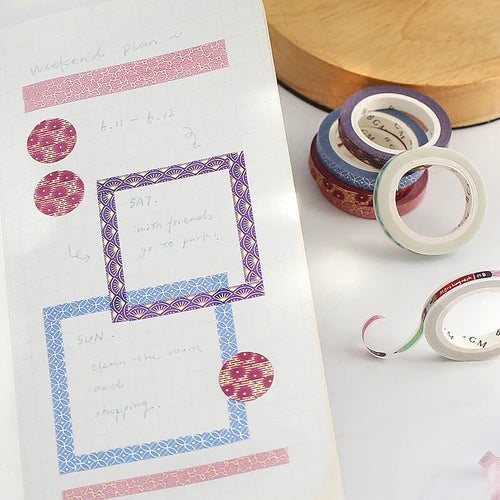 weekend plan ~
6.11 - 6.12
SAT.
with friends
go to
SUN.
clean the room
and
shopping.
BGM
BGM